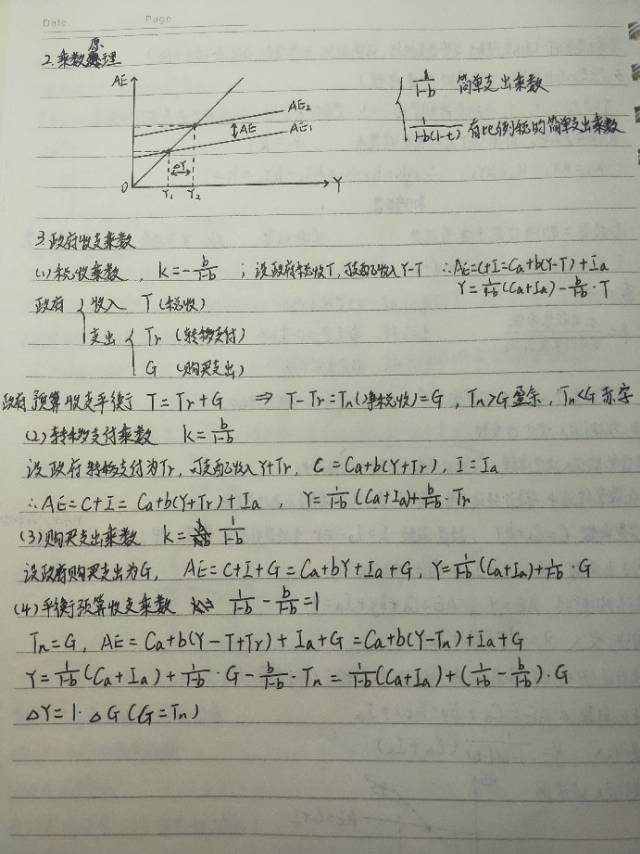 Date. Page.
2.乘数原理
AE
AE₂
△AE
AE₁
△Y
0 Y₁ Y₂ Y
{ 1/(1-b) 简单支出乘数
1/(1-b(1-t)) 有比例税的简单支出乘数
3.政府收支乘数
(1)税收乘数, k=-b/(1-b) ; 设政府税收T,可支配收入Y-T ∴AE=C+I=Ca+b(Y-T)+Ia
Y=1/(1-b)(Ca+Ia)-b/(1-b)·T
政府 { 收入 T (税收)
支出 { Tr (转移支付)
G (购买支出)
政府预算收支平衡 T=Tr+G ⇒ T-Tr=Tn(净税收)=G, Tn>G盈余, Tn<G赤字
(2)转移支付乘数 k=b/(1-b)
设政府转移支付为Tr,可支配收入Y+Tr, C=Ca+b(Y+Tr), I=Ia
∴AE=C+I=Ca+b(Y+Tr)+Ia, Y=1/(1-b)(Ca+Ia)+b/(1-b)·Tr
(3)购买支出乘数 k=1/(1-b)
设政府购买支出为G, AE=C+I+G=Ca+bY+Ia+G, Y=1/(1-b)(Ca+Ia)+1/(1-b)·G
(4)平衡预算收支乘数 1/(1-b)-b/(1-b)=1
Tn=G, AE=Ca+b(Y-T+Tr)+Ia+G=Ca+b(Y-Tn)+Ia+G
Y=1/(1-b)(Ca+Ia)+1/(1-b)·G-b/(1-b)·Tn=1/(1-b)(Ca+Ia)+(1/(1-b)-b/(1-b))·G
△Y=1·△G(G=Tn)